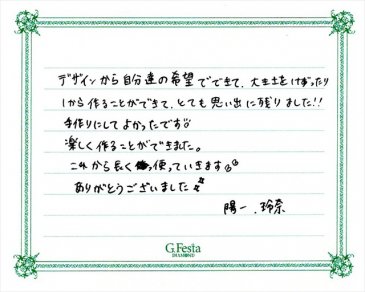 デザインから自分達の希望でできて、大まをけずったり
1から作ることができて、とても思い出に残りました!!
手作りにしてよかったです
楽しく作ることができました。
これから長く使っていきます
ありがとうございました
陽一、玲奈
G.Festa
DIAMOND